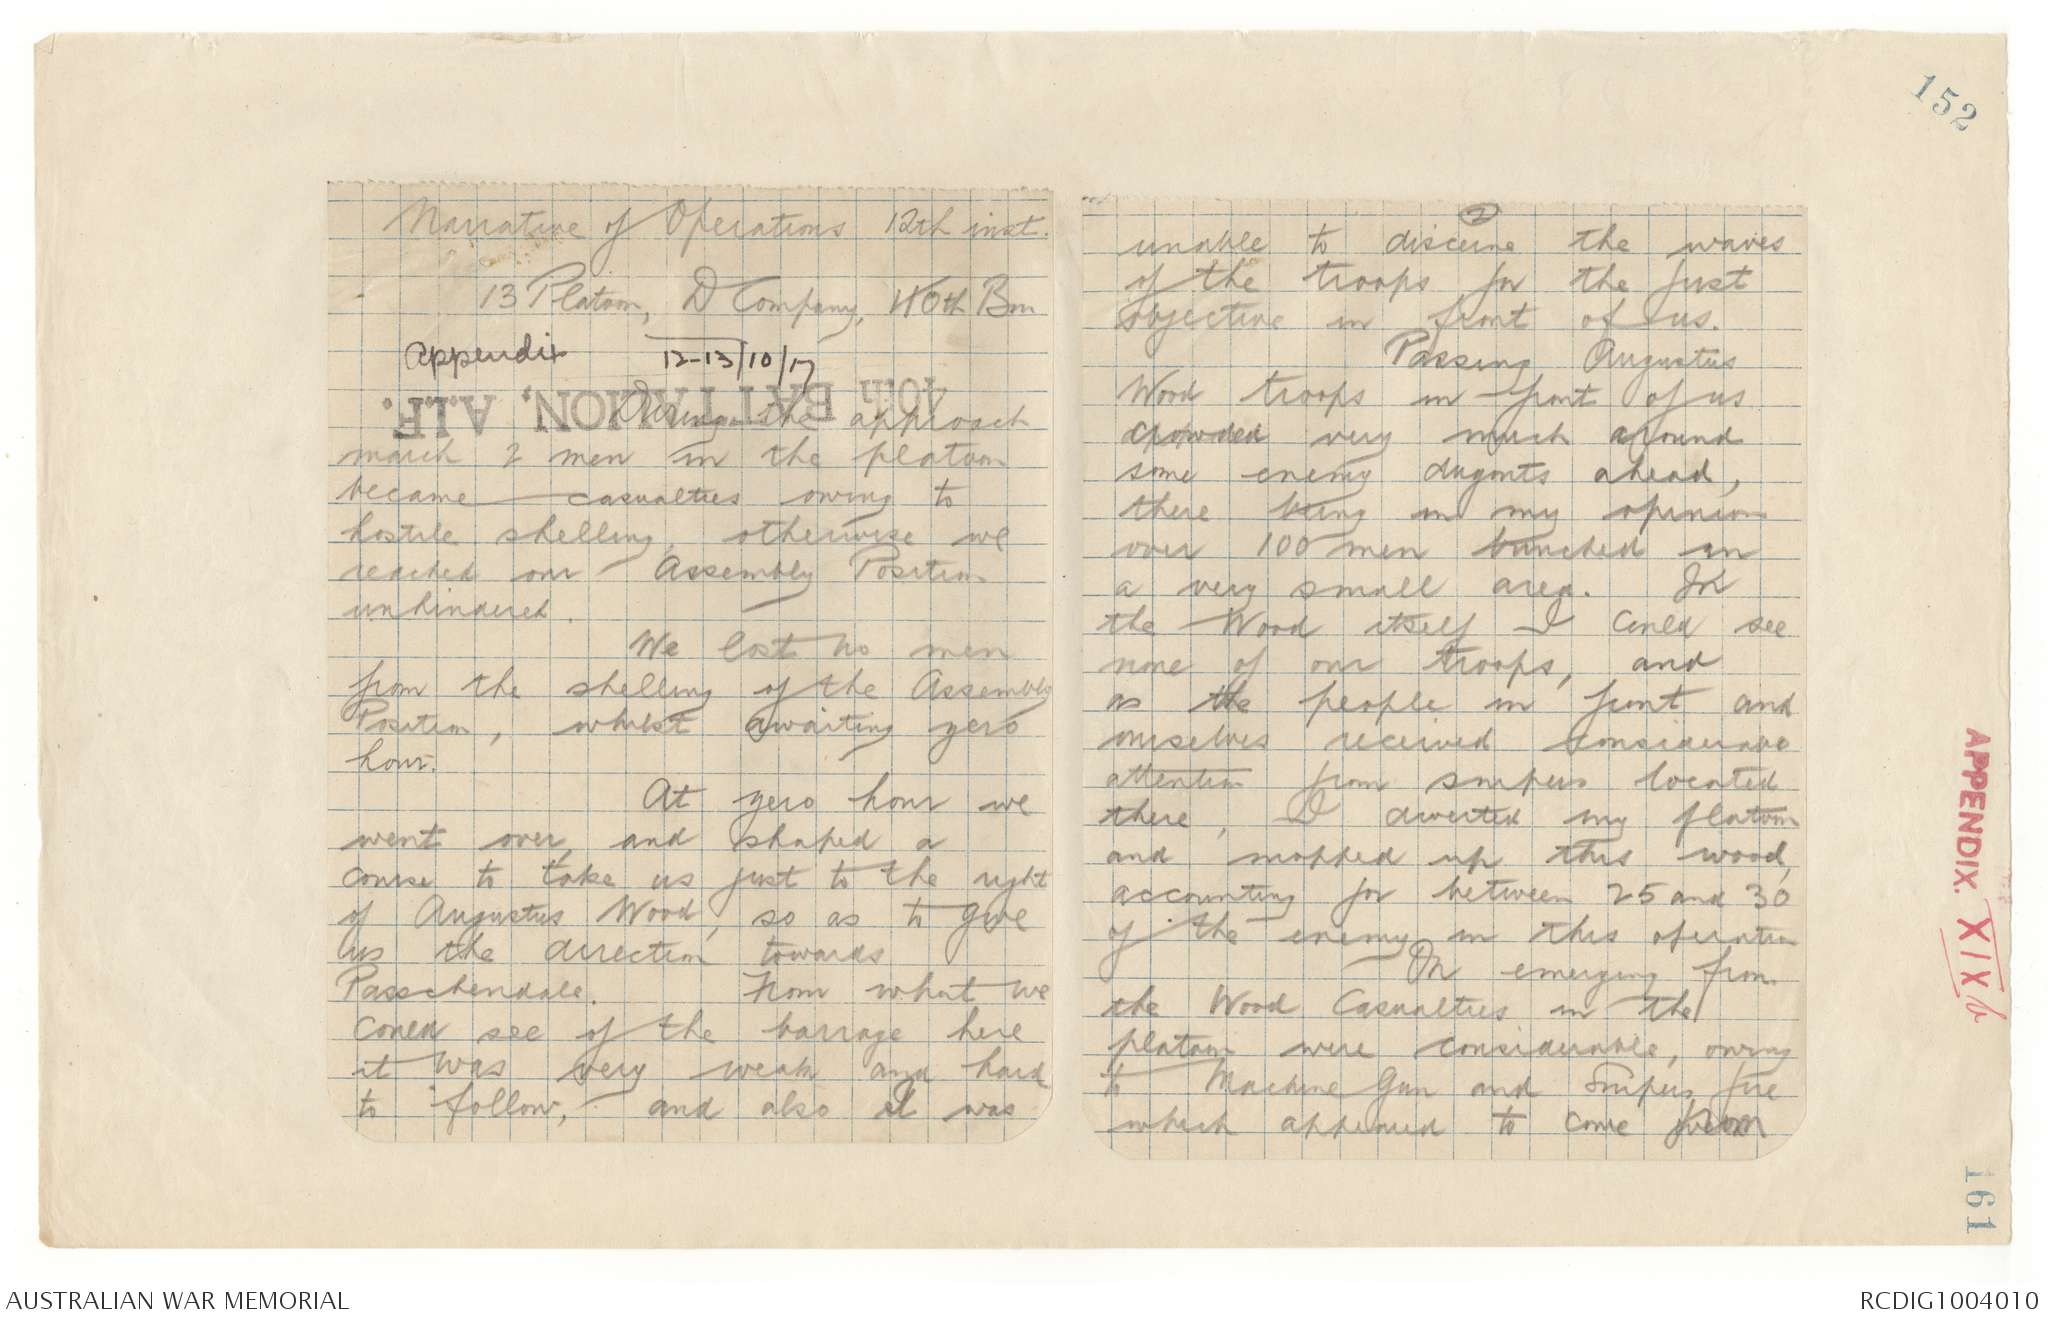 152
Narrative of Operations 12th inst.
13 Platoon, D Company, 40th Bn
Appendix 12-13/10/17
40th BATTALION, A.I.F.
During the approach
march 2 men in the platoon
became casualties owing to
hostile shelling, otherwise we
reached our Assembly Position
unhindered.
We lost no men
from the shelling of the Assembly
Position, whilst awaiting zero
hour.
At zero hour we
went over, and shaped a
course to take us just to the right
of Augustus Wood, so as to give
us the direction towards
Passchendale. From what we
could see of the barrage here
it was very weak and hard
to follow, and also it was
2
unable to discerne the waves
of the troops for the first
objective in front of us.
Passing Augustus
Wood troops in front of us
crowded very much around
some enemy dugouts ahead,
there being in my opinion
over 100 men bunched in
a very small area. In
the Wood itself I could see
none of our troops, and
as the people in front and
ourselves received considerable
attention from snipers located
there, I diverted my platoon
and mopped up this wood,
accounting for between 25 and 30
of the enemy in this operation
On emerging from
the Wood Casualties in the
platoon were considerable, owing
to Machine Gun and Snipers fire
which appeared to come from
APPENDIX. XIX b
161
AUSTRALIAN WAR MEMORIAL
RCDIG1004010